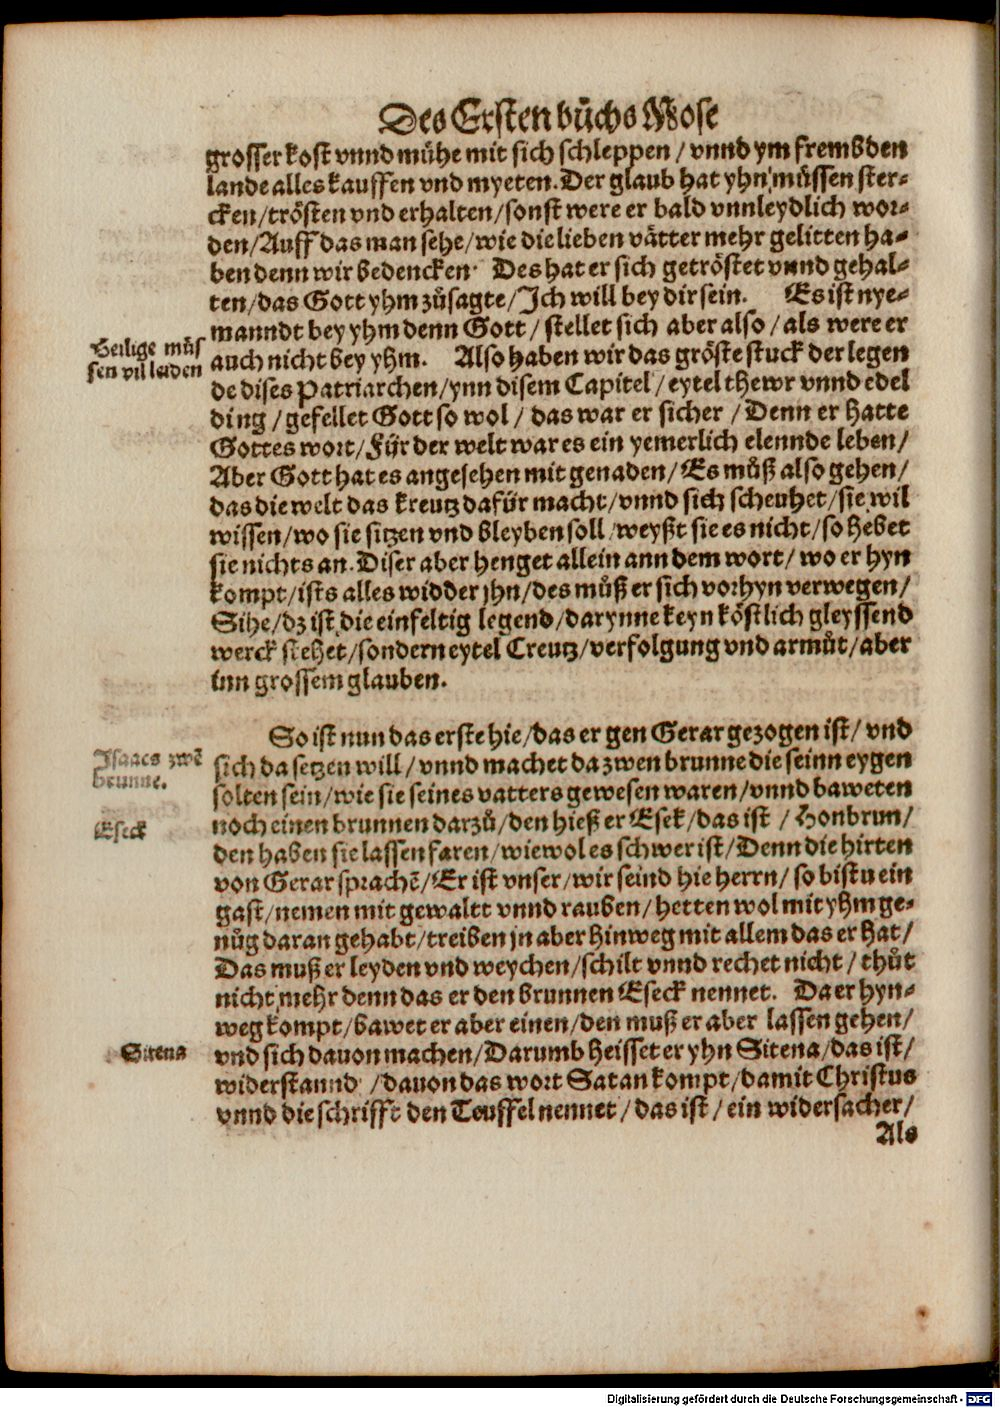 Des Ersten bůchs Mose
grosser kost vnnd mühe mit sich schleppen / vnnd ym frembden
lande alles kauffen vnd myeten. Der glaub hat yhn müssen ster-
cken / trösten vnd erhalten / sonst were er bald vnnleydlich wor-
den / Auff das man sehe / wie die lieben vätter mehr gelitten ha-
ben denn wir bedencken. Des hat er sich getröstet vnnd gehal-
ten / das Gott yhm zůsagte / Ich will bey dir sein. Es ist nye-
manndt bey yhm denn Gott / stellet sich aber also / als were er
Heilige müs
sen vil leiden
auch nicht bey yhm. Also haben wir das gröste stuck der legen
de dises Patriarchen / ynn disem Capitel / eytel thewr vnnd edel
ding / gefellet Gott so wol / das war er sicher / Denn er hatte
Gottes wort / Für der welt war es ein yemerlich elennde leben /
Aber Gott hat es angesehen mit genaden / Es můß also gehen /
das die welt das kreutz dafür macht / vnnd sich scheuhet / sie wil
wissen / wo sie sitzen vnd bleyben soll / weyßt sie es nicht / so hebet
sie nichts an. Diser aber henget allein ann dem wort / wo er hyn
kompt / ists alles widder jhn / des můß er sich vorhyn verwegen /
Sihe / dz ist die einfeltig legend / darynne keyn köstlich gleyssend
werck stehet / sondern eytel Creutz / verfolgung vnd armůt / aber
inn grossem glauben.
So ist nun das erste hie / das er gen Gerar gezogen ist / vnd
Isaacs zwē
brunne.
sich da setzen will / vnnd machet da zwen brunne die seinn eygen
solten sein / wie sie seines vatters gewesen waren / vnnd baweten
Eseck
noch einen brunnen darzů / den hieß er Esek / das ist / Honbrun /
den haben sie lassen faren / wiewol es schwer ist / Denn die hirten
von Gerar sprachē / Er ist vnser / wir seind hie herrn / so bistu ein
gast / nemen mit gewaltt vnnd rauben / hetten wol mit yhm ge-
nůg daran gehabt / treiben jn aber hinweg mit allem das er hat /
Das muß er leyden vnd weychen / schilt vnnd rechet nicht / thůt
nicht mehr denn das er den brunnen Eseck nennet. Da er hyn-
weg kompt / bawet er aber einen / den muß er aber lassen gehen /
Sitena
vnd sich dauon machen / Darumb heisset er yhn Sitena / das ist /
widerstannd / dauon das wort Satan kompt / damit Christus
vnnd die schrifft den Teuffel nennet / das ist / ein widersacher /
Als
Digitalisierung gefördert durch die Deutsche Forschungsgemeinschaft - DFG